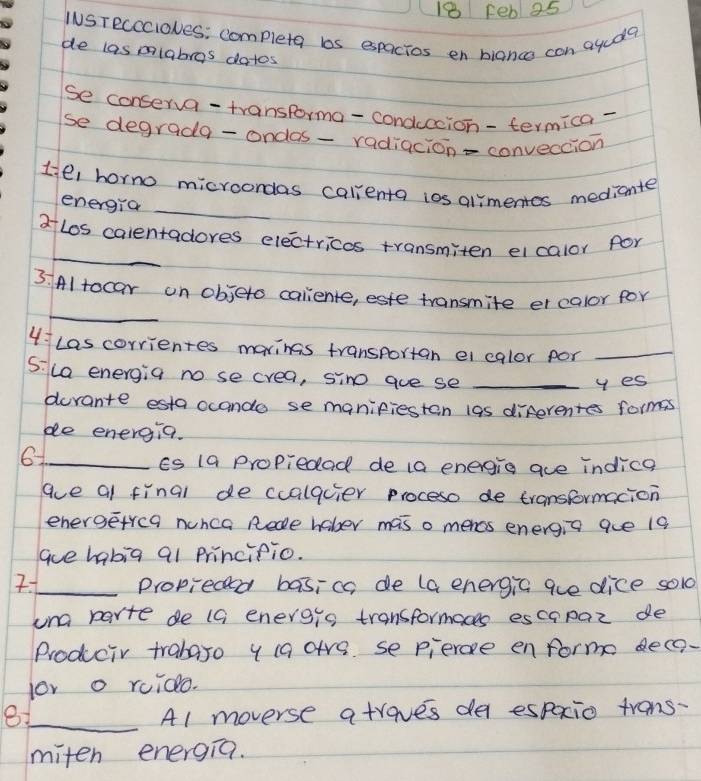 18 Feb 25
INSTRCCCIONES: completa los espacios en blanco con ayuda
de las palabras datos
Se conserva - transforma - conduccion - termica -
se degrada - ondas - radiacion - conveccion
1- el horno microondas calienta los alimentos mediante
energia ____
2- Los calentadores electricos transmiten el calor por
____
3- Al tocar un objeto caliente, este transmite el calor por
____
4- Las corrientes marinas transportan el calor por ____
5- La energia no se crea, sino que se ____ y es
durante esta ocando se manifiestan las diferentes formas
de energia.
6- ____ Es la propiedad de la energia que indica
que al final de cualquier proceso de transformacion
energética nunca Puede haber más o menos energia que la
que había al principio.
7- ____ propiedad basica de la energia que dice solo
una parte de la energia transformada es capaz de
Producir trabajo y la otra. se pierde en forma de ca-
lor o ruido.
8- ____ Al moverse a través del espacio trans-
miten energia.